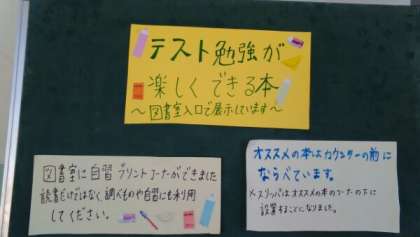 テスト勉強が
楽しくできる本
〜図書室入口で展示しています〜
図書室に自習プリントコーナーができました
読書だけではなく、調べものや自習にも利用
してください。
オススメの本はカウンターの前に
ならべています。
×スリッパはオススメの本のコーナーの下に
設置することになりました。